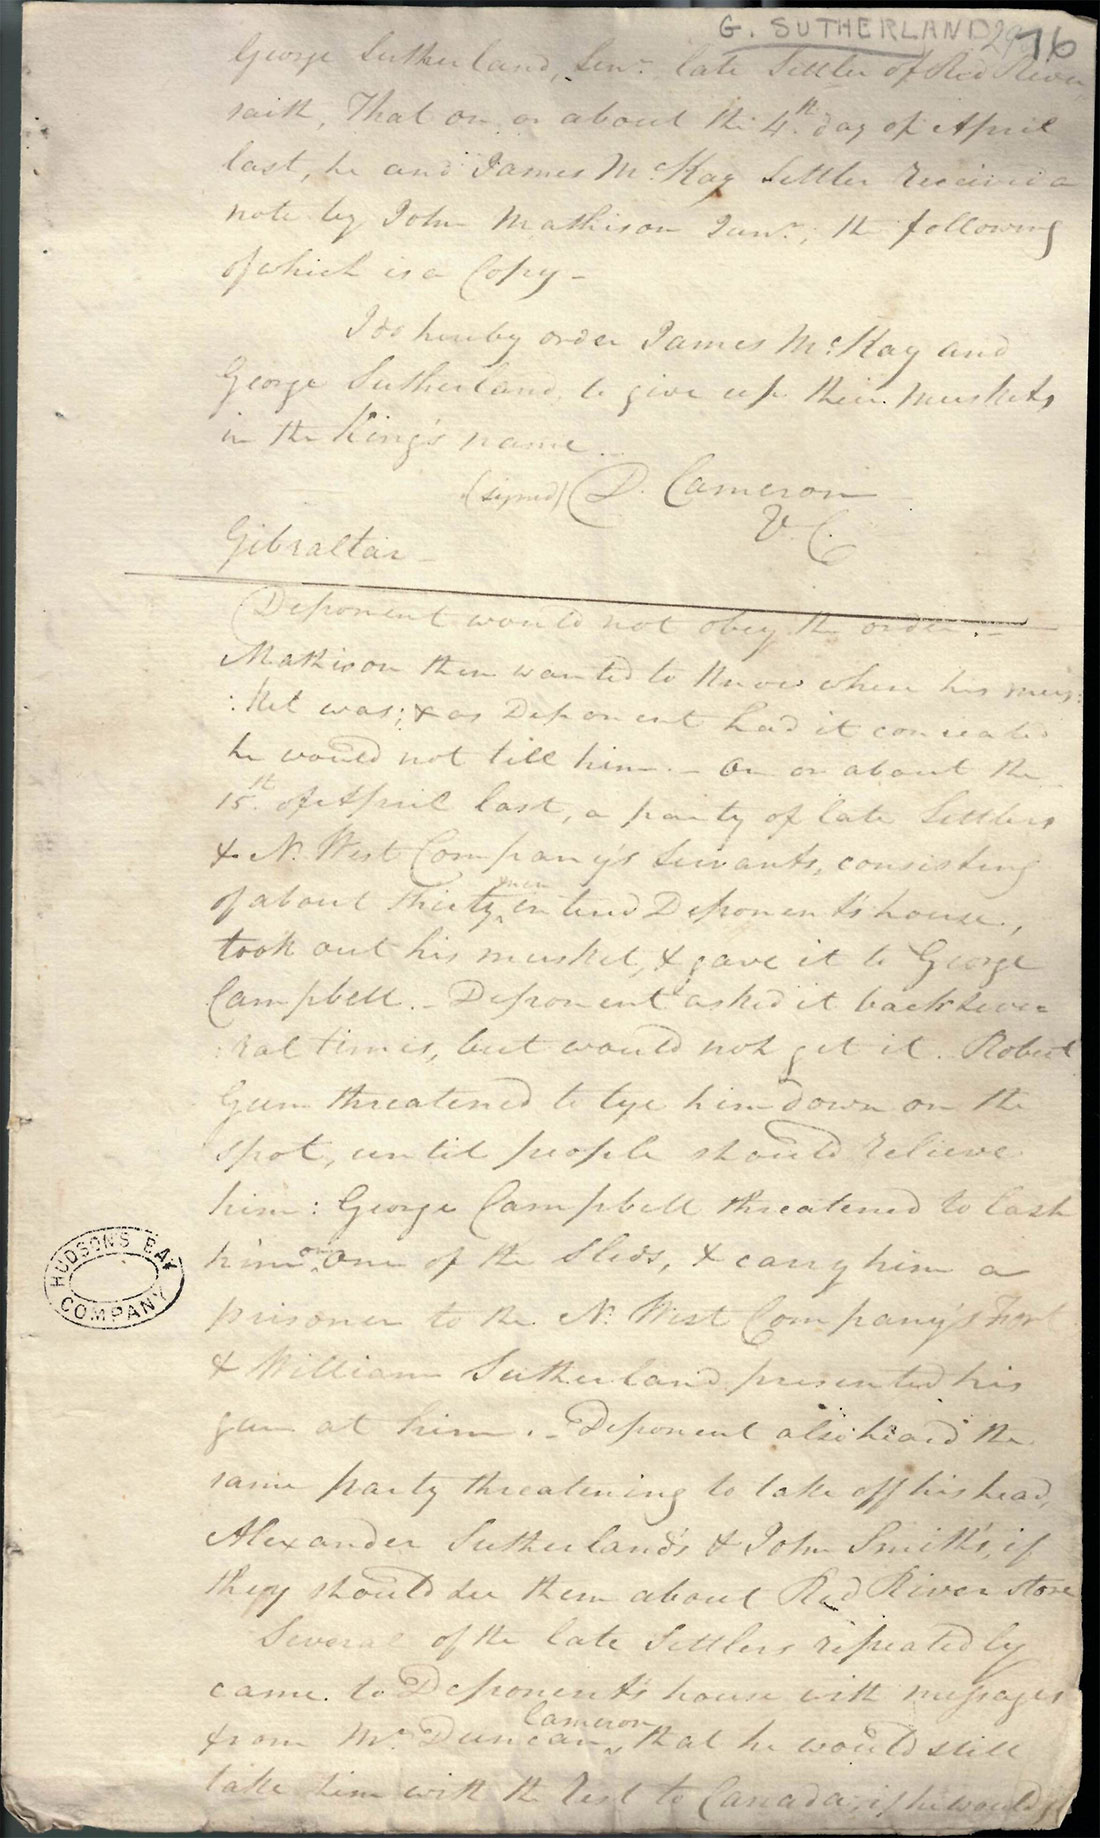 G. SUTHERLAND
76
George Sutherland, Senr. late Settler of Red River
saith, That on or about the 4th. day of April
last, he and James McKay Settler received a
note by John Mathison Junr., the following
of which is a Copy –
I do hereby order James McKay and
George Sutherland, to give up their muskets,
in the King's name.
(signed) D. Cameron
V. C.
Gibraltar –
Deponent would not obey the order. –
Mathison then wanted to know where his mus:
:ket was; & as Deponent had it concealed
he would not tell him. – On or about the
15th. of April last, a party of late Settlers
& N. West Company's Servants, consisting
of about thirty men entered Deponent's house,
took out his musket, & gave it to George
Campbell. – Deponent asked it back seve
:ral times, but would not get it. Robert
Gunn threatened to tye him down on the
spot, until people should relieve
him: George Campbell threatened to lash
him on one of the Sleds, & carry him a
prisoner to the N. West Company's Fort
& William Sutherland presented his
gun at him. – Deponent also heard the
same party threatening to take off his head,
Alexander Sutherland's & John Smith's, if
they should see them about Red River store
Several of the late Settlers repeatedly
came to Deponent's house with messages
from Mr. Duncan Cameron, that he would still
take him with the rest to Canada, if he would
HUDSON'S BAY
COMPANY